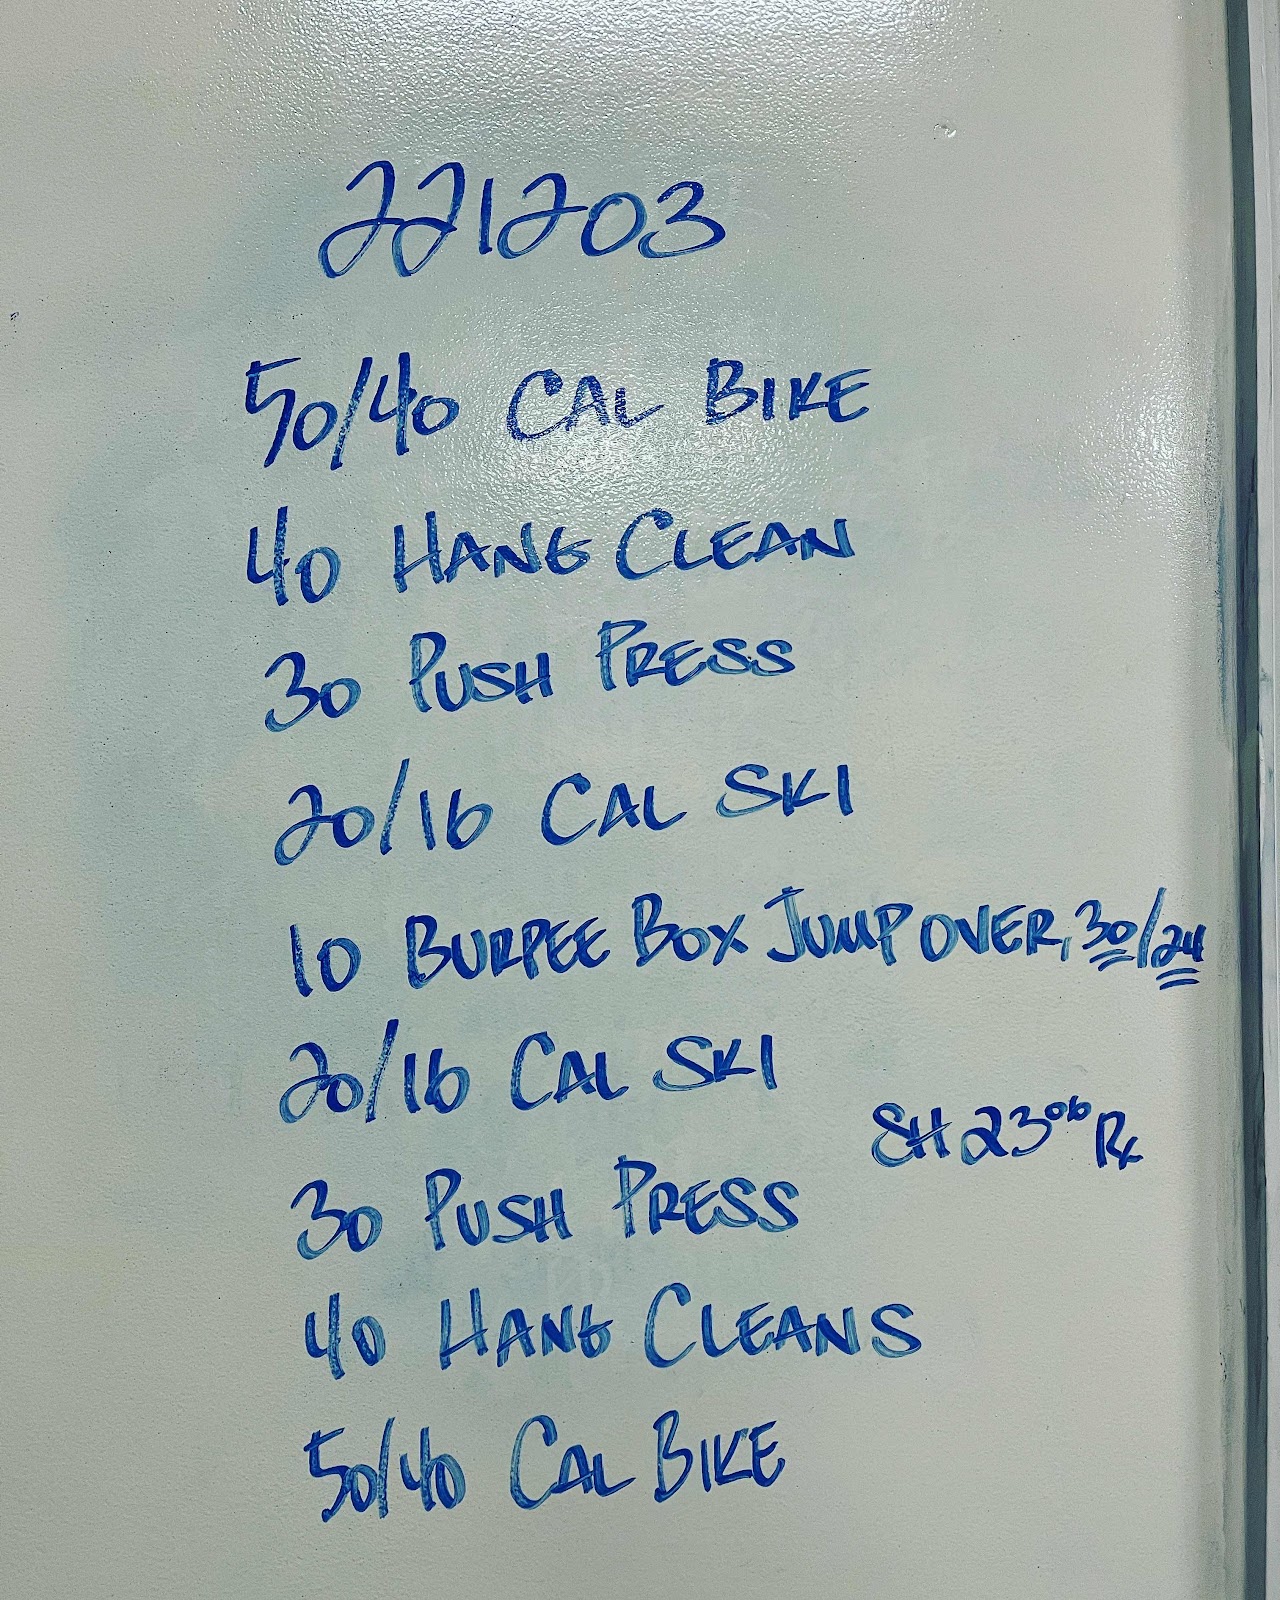 221203
50/40 CAL BIKE
40 HANG CLEAN
30 PUSH PRESS
20/16 CAL SKI
10 BURPEE BOX JUMP OVER, 30/24
20/16 CAL SKI
SH 23⁰⁶ Rx
30 PUSH PRESS
40 HANG CLEANS
50/40 CAL BIKE